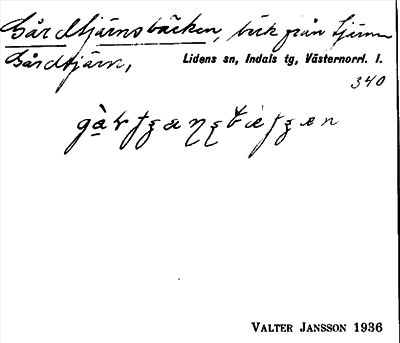 Gårdtjärnsbäcken, bäck från tjärnen
Gårdtjärn, Lidens sn, Indals tg, Västernorrl. l.
340
VALTER JANSSON 1936